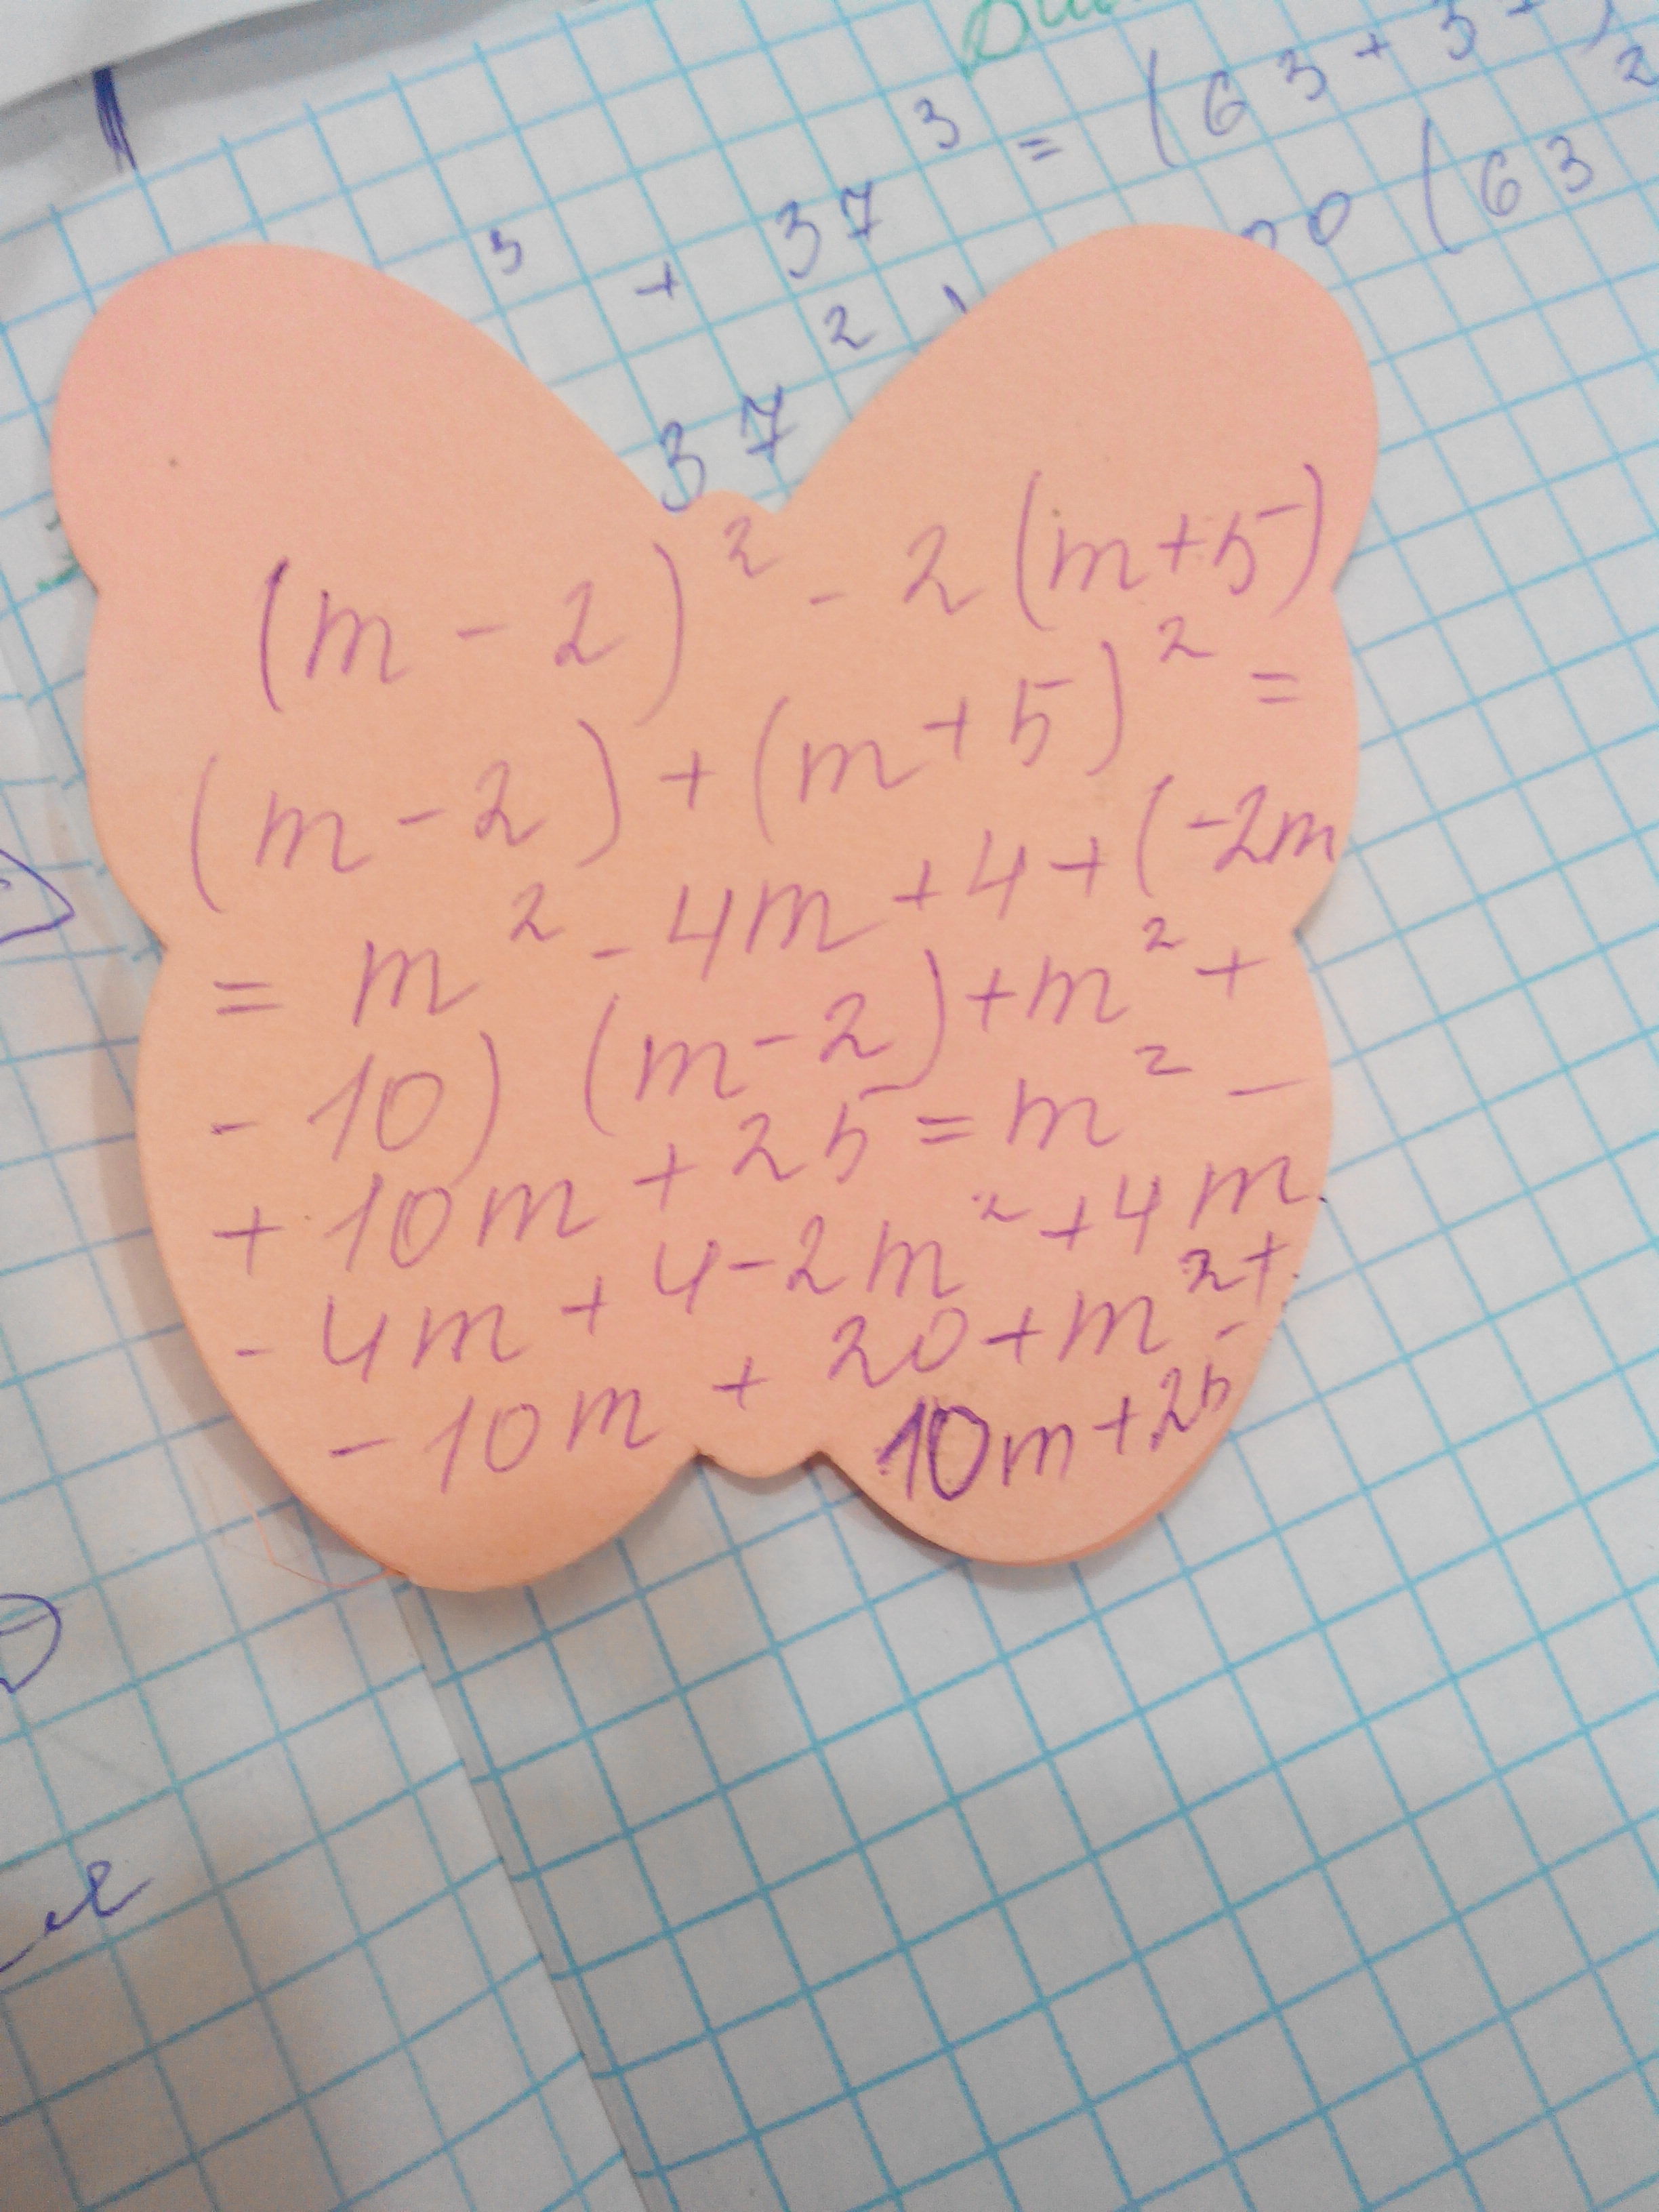 3 = (63+37)
3 + 37 00 (63
2 2
37
(m-2)² - 2(m+5)
(m-2)+(m+5)² =
= m² - 4m + 4 + (-2m
- 10) (m-2) + m² +
+ 10m + 25 = m² -
- 4m + 4 - 2m² + 4m
- 10m + 20 + m² +
10m + 25